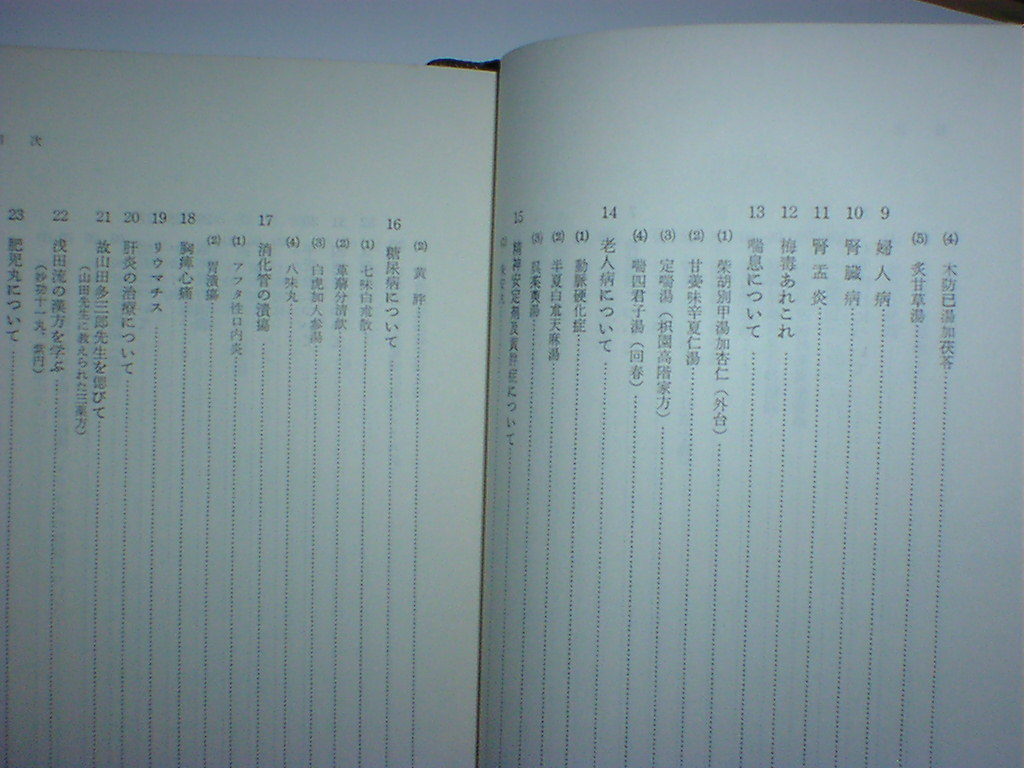 (4) 木防已湯加茯苓
(5) 炙甘草湯
9 婦人病
10 腎臓病
11 腎盂炎
12 梅毒あれこれ
13 喘息について
(1) 柴胡別甲湯加杏仁（外台）
(2) 甘姜味辛夏仁湯
(3) 定喘湯（枳園高階家方）
(4) 喘四君子湯（回春）
14 老人病について
(1) 動脈硬化症
(2) 半夏白朮天麻湯
(3) 呉茱萸湯
15 精神安定剤及黄胖症について
(2) 黄胖
16 糖尿病について
(1) 七味白朮散
(2) 萆薢分清飲
(3) 白虎加人参湯
(4) 八味丸
17 消化管の潰瘍
(1) アフタ性口内炎
(2) 胃潰瘍
18 胸痺心痛
19 リウマチス
20 肝炎の治療について
21 故山田多三郎先生を偲びて
（山田先生に教えられた三薬方）
22 浅田流の漢方を学ぶ
（妙功十一丸、紫円）
23 肥児丸について
次